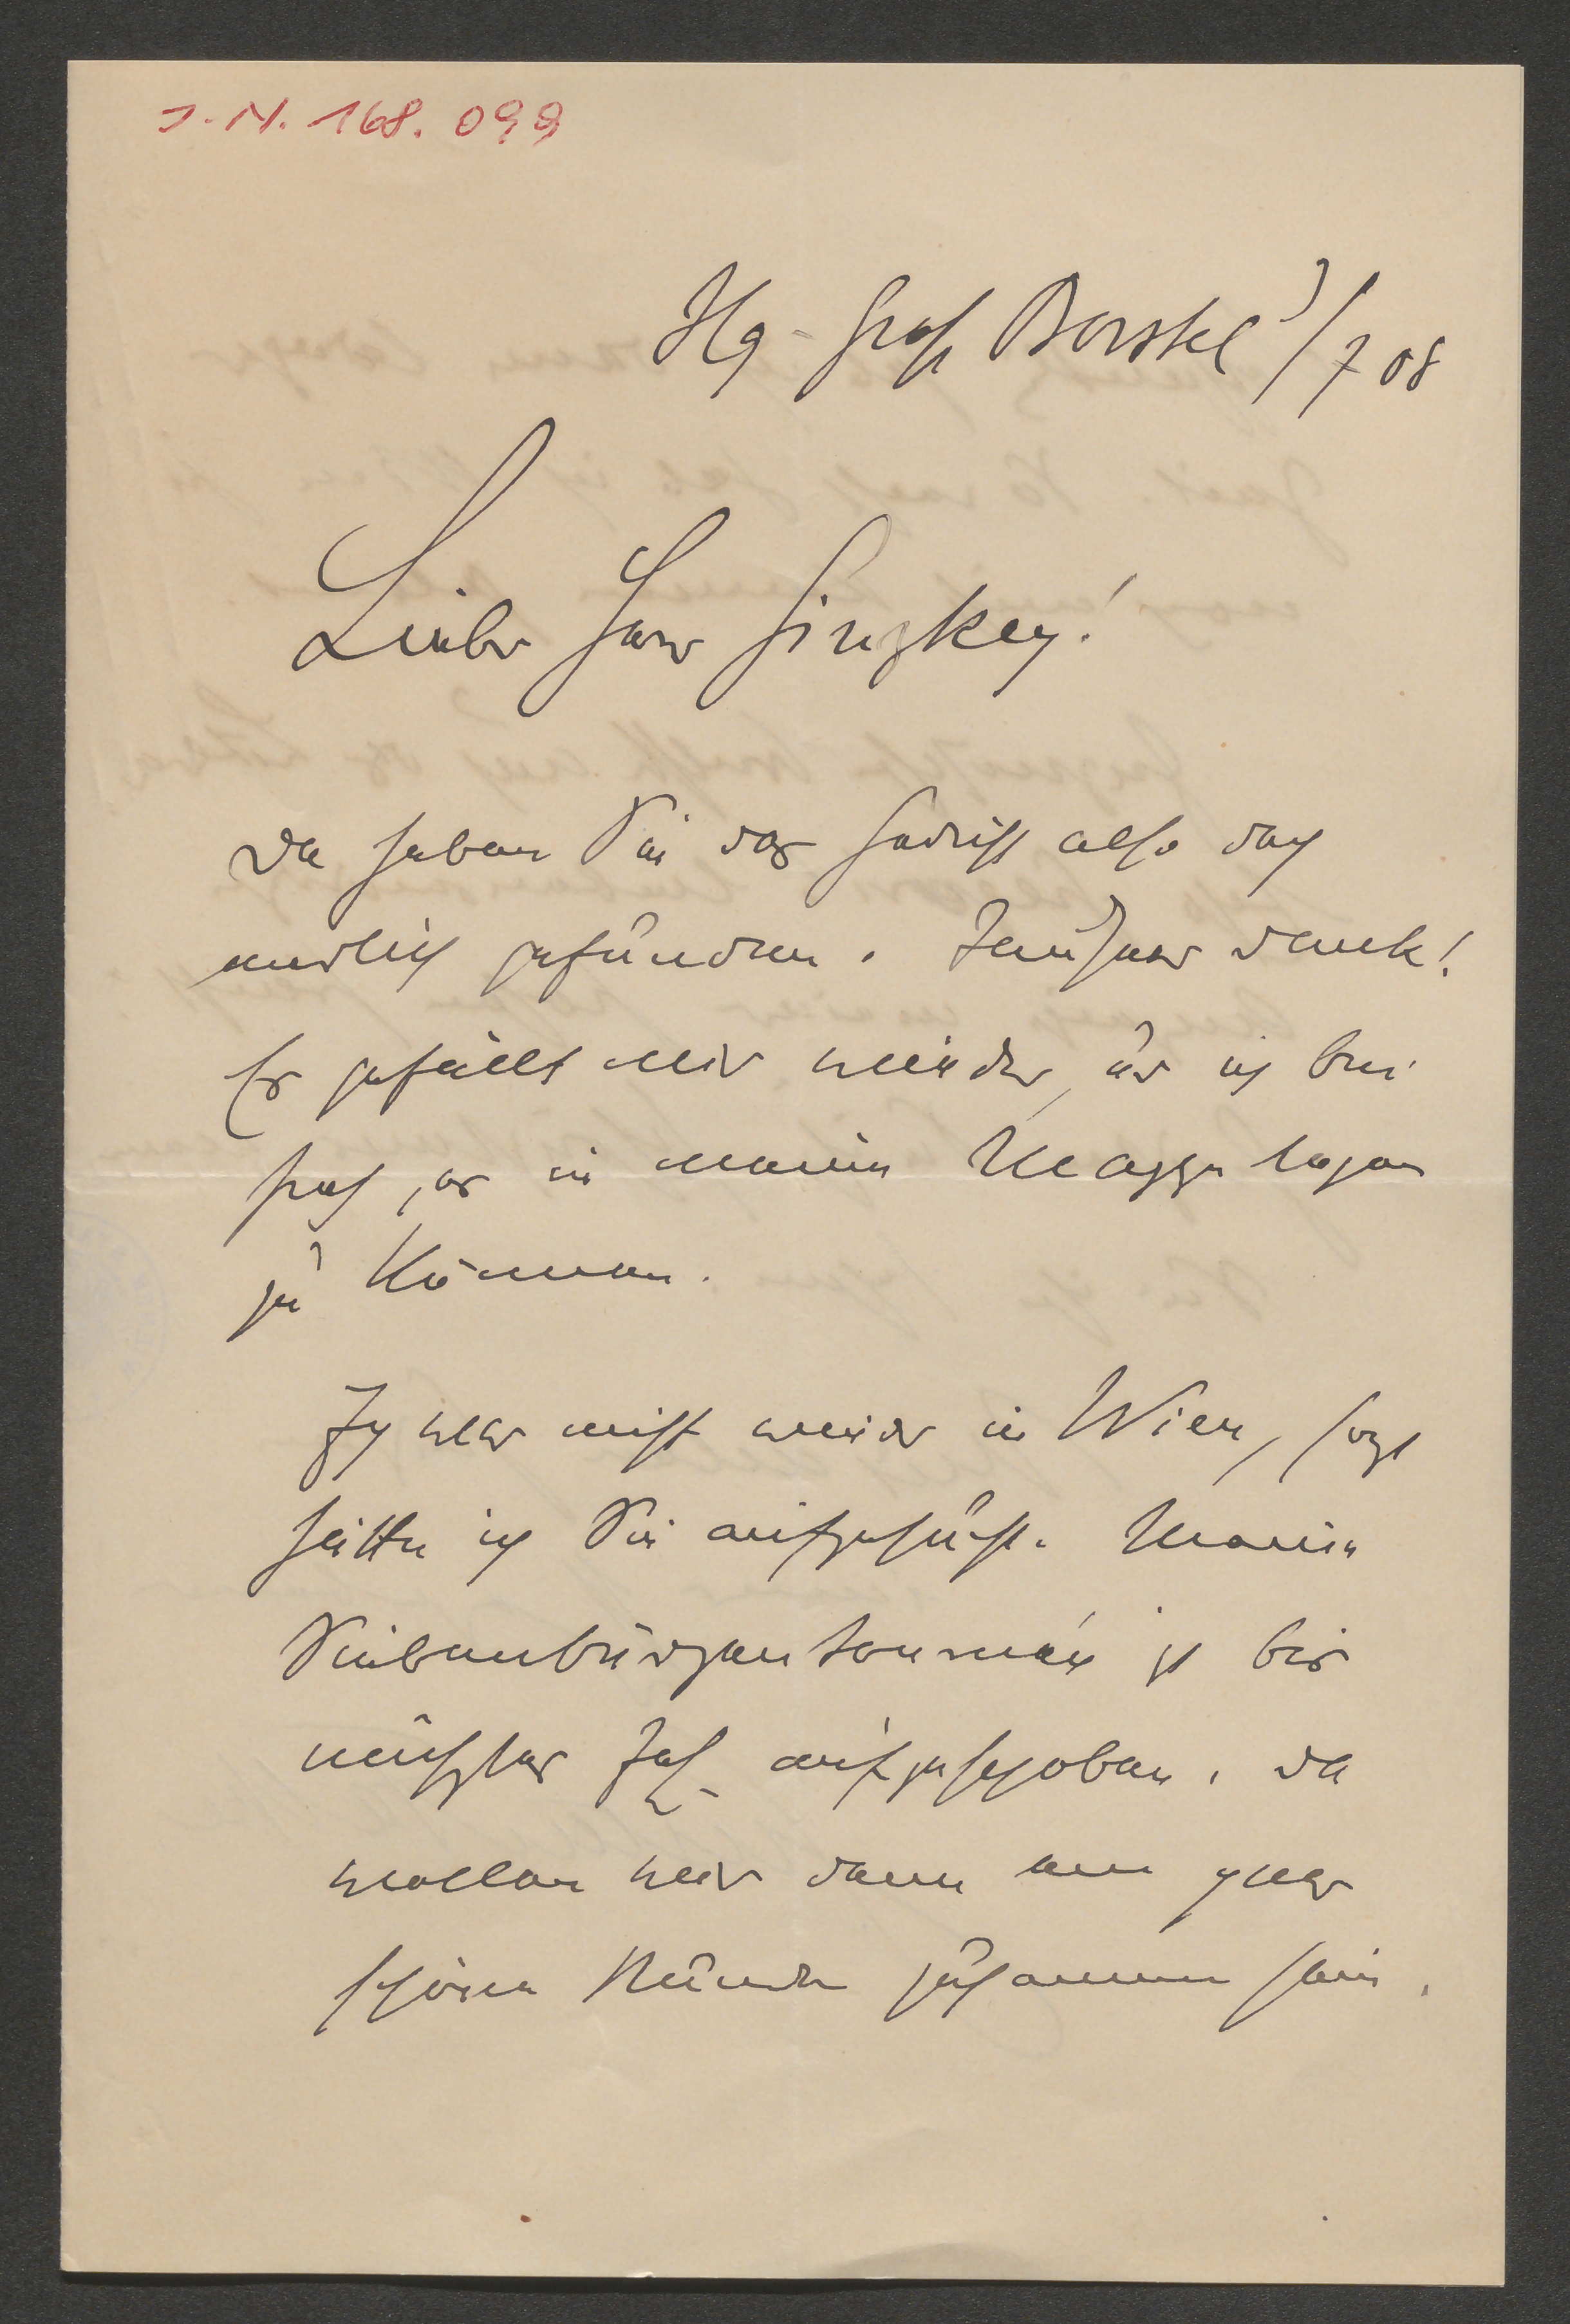 J. N. 168.099
Hg - Groß Borstel 3/7 08
Lieber Herr Ginzkey!
Da haben Sie das Gedicht also doch
endlich gefunden. Tausend Dank!
Es gefällt mir wieder, u. ich bin
froh, es in meine Mappe legen
zu können.
Ich war nicht wieder in Wien, sonst
hätte ich Sie aufgesucht. Meine
Siebenbürgentournée ist bis
nächstes Jahr aufgeschoben, da
wollen wir dann ein paar
schöne Stunden zusammen sein.